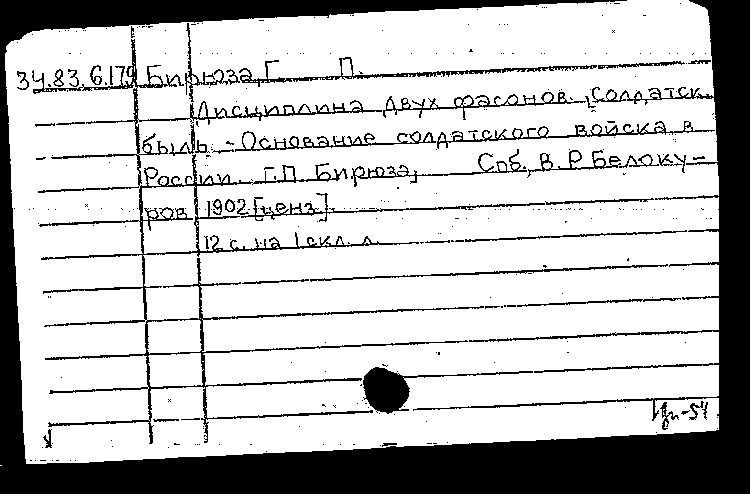 34.83.6.179 Бирюза, Г. П.
Дисциплина двух фасонов. Солдатск.
быль. - Основание солдатского войска в
России. Г.П. Бирюза, Спб., В. Р. Белоку-
ров 1902 [ценз].
12 с. на 1 скл. л.